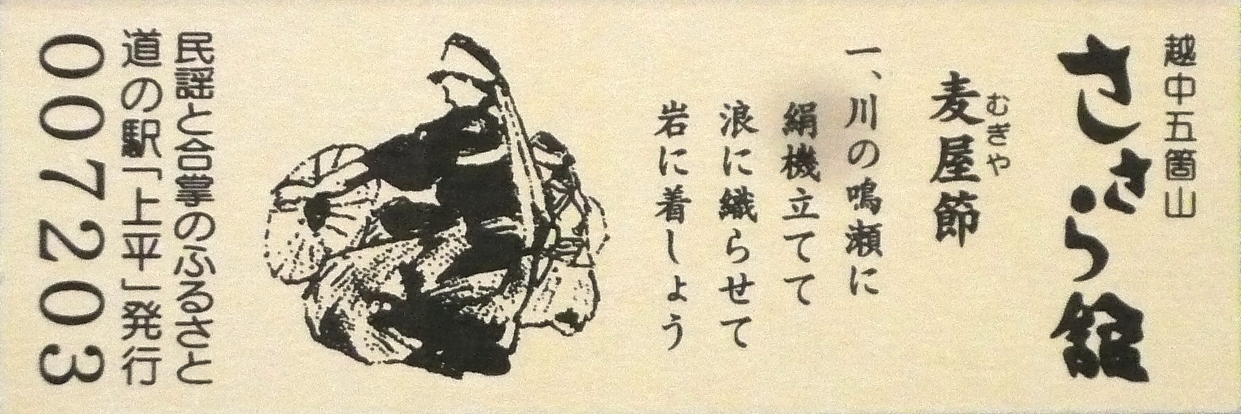 越中五箇山
ささら館
むぎや
麦屋節
一、川の鳴瀬に
絹機立てて
浪に織らせて
岩に着しょう
民謡と合掌のふるさと
道の駅「上平」発行
007203